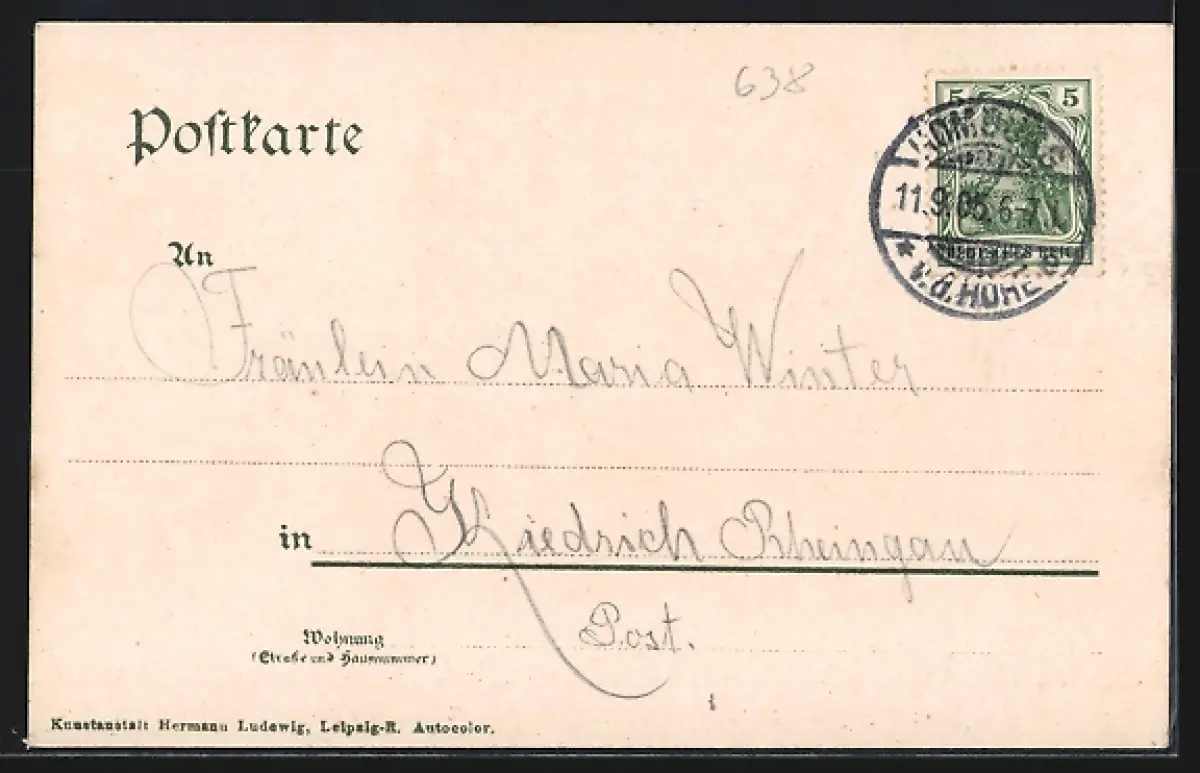 638
Postkarte
5 5
HOMBURG
11.9.05. 6-7
* v.d. HÖHE
DEUTSCHES REICH
An
Fräulein Maria Winter
in Kiedrich Rheingau
Post.
Wohnung
(Straße und Hausnummer)
Kunstanstalt Hermann Ludewig, Leipzig-R. Autocolor.